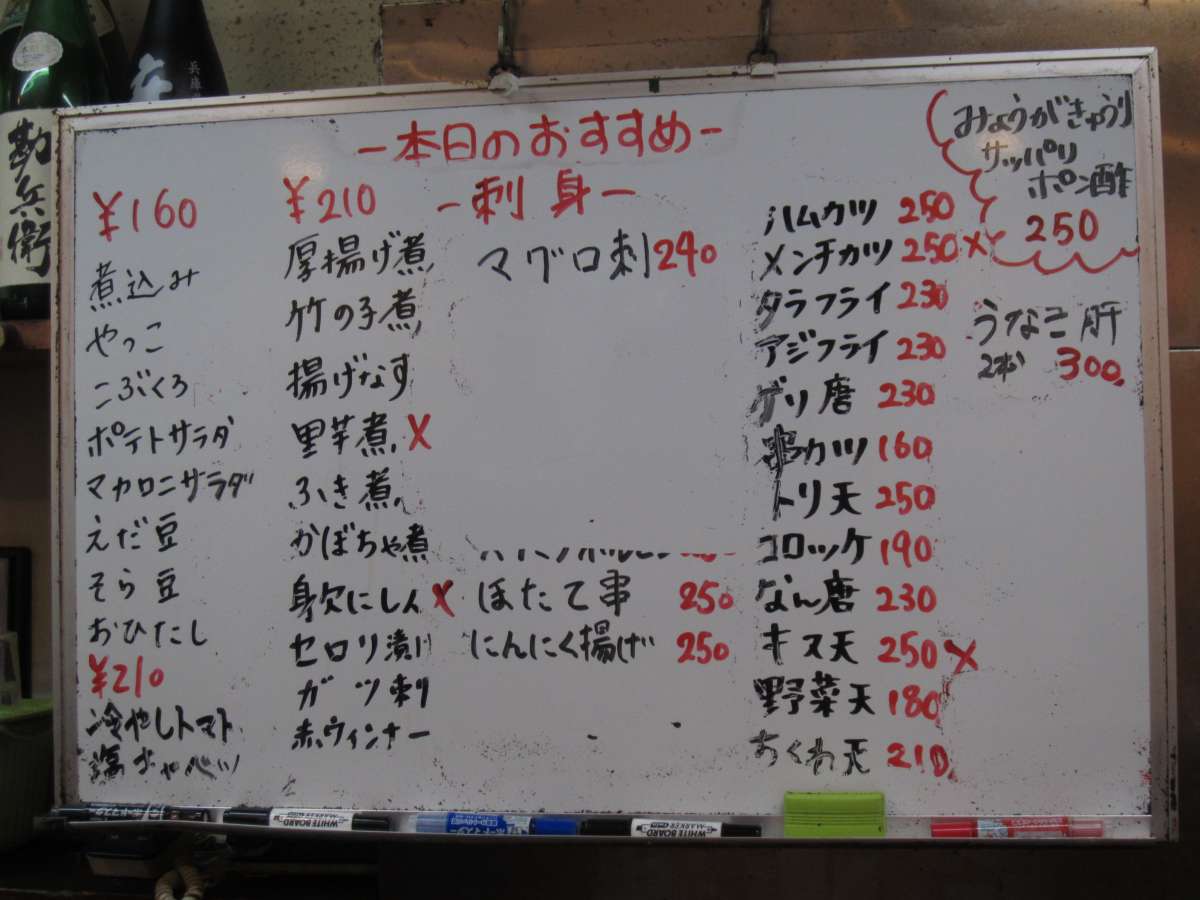 -本日のおすすめ-
¥160
煮込み
やっこ
こぶくろ
ポテトサラダ
マカロニサラダ
えだ豆
そら豆
おひたし
¥210
冷やしトマト
塩キャベツ
¥210
厚揚げ煮
竹の子煮
揚げなす
里芋煮 ×
ふき煮
かぼちゃ煮
身欠にしん ×
セロリ漬け
ガツ刺
赤ウィンナー
-刺身-
マグロ刺 240
ほたて串 250
にんにく揚げ 250
ハムカツ 250
メンチカツ 250 ×
タラフライ 230
アジフライ 230
ゲソ唐 230
串カツ 160
トリ天 250
コロッケ 190
なん唐 230
キス天 250 ×
野菜天 180
ちくわ天 210
みょうがきゅうり
サッパリ
ポン酢
250
うなぎ肝
2本 300
勘兵衛
兵庫
WHITE BOARD
MARKER
WHITE BOARD
MARKER